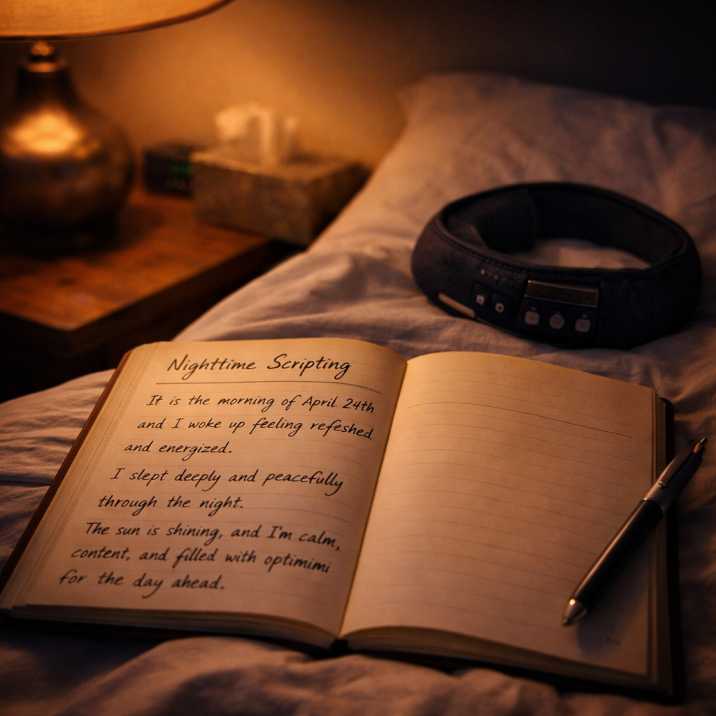 Nighttime Scripting
It is the morning of April 24th
and I woke up feeling refeshed
and energized.
I slept deeply and peacefully
through the night.
The sun is shining, and I'm calm,
content, and filled with optimimi
for the day ahead.